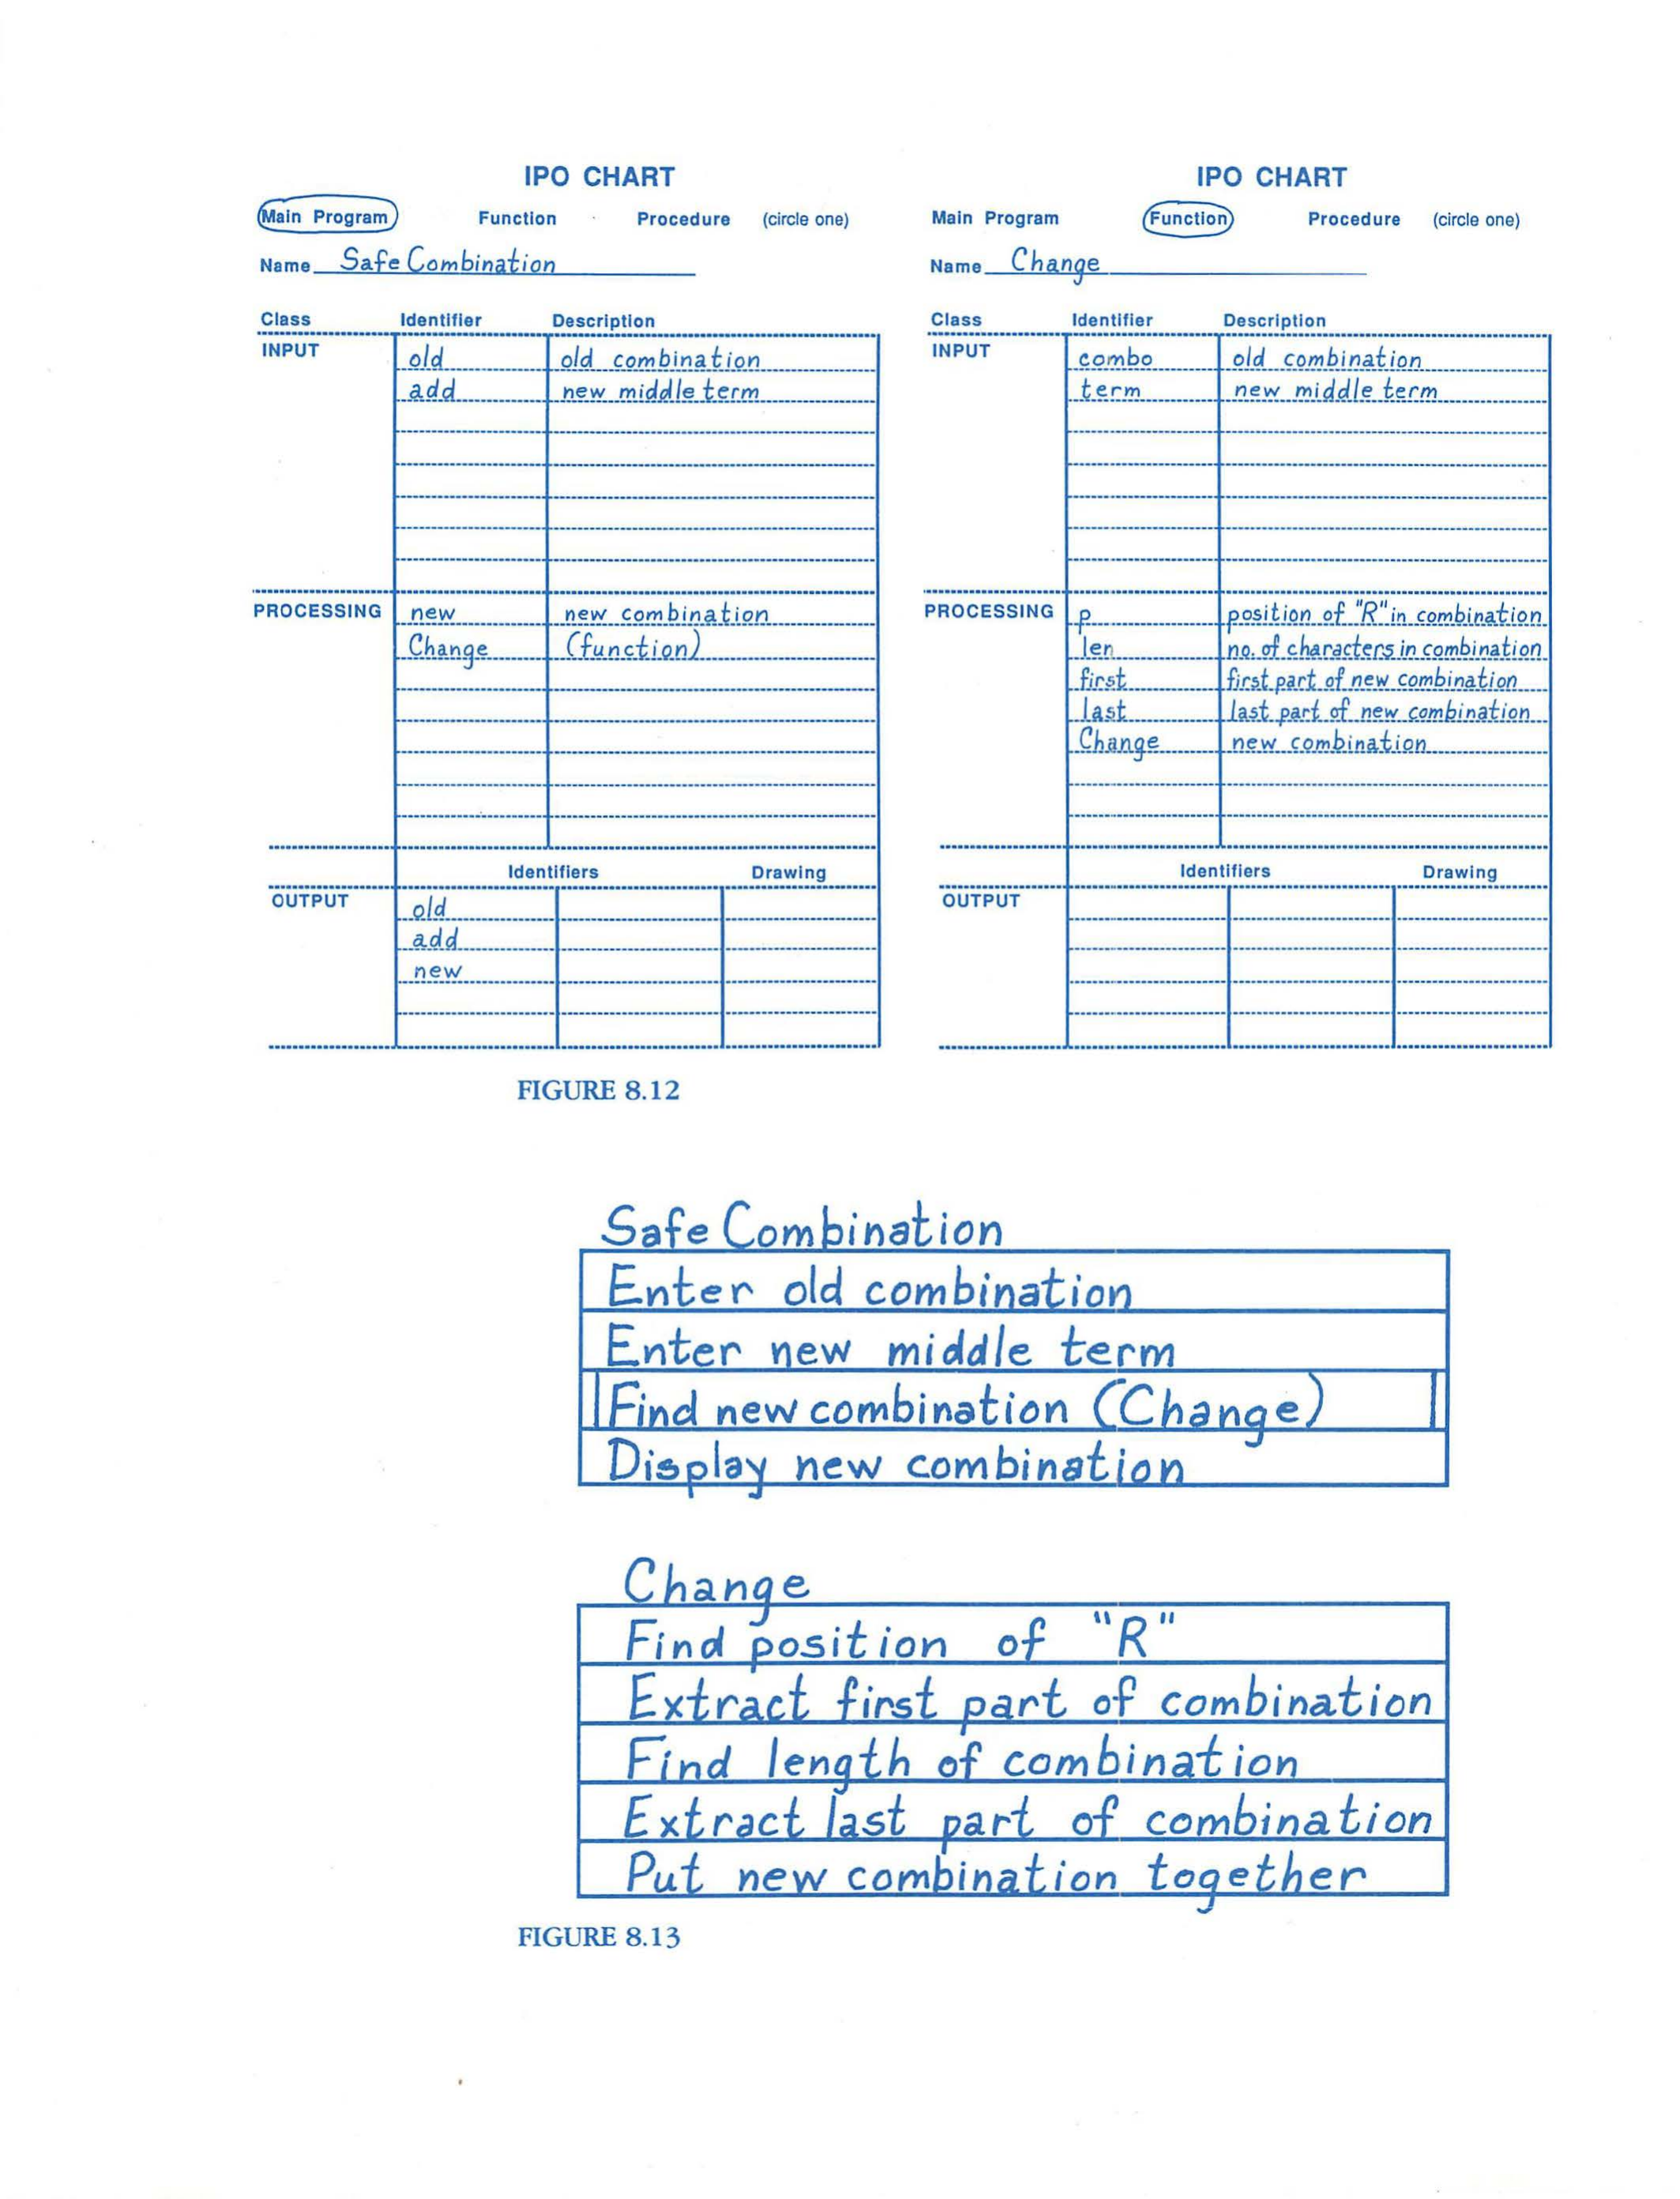 IPO CHART
Main Program Function Procedure (circle one)
Name Safe Combination
Class Identifier Description
INPUT old old combination
add new middle term
PROCESSING new new combination
Change (function)
Identifiers Drawing
OUTPUT old
add
new
IPO CHART
Main Program Function Procedure (circle one)
Name Change
Class Identifier Description
INPUT combo old combination
term new middle term
PROCESSING p position of "R" in combination
len no. of characters in combination
first first part of new combination
last last part of new combination
Change new combination
Identifiers Drawing
OUTPUT
FIGURE 8.12
Safe Combination
Enter old combination
Enter new middle term
Find new combination (Change)
Display new combination
Change
Find position of "R"
Extract first part of combination
Find length of combination
Extract last part of combination
Put new combination together
FIGURE 8.13